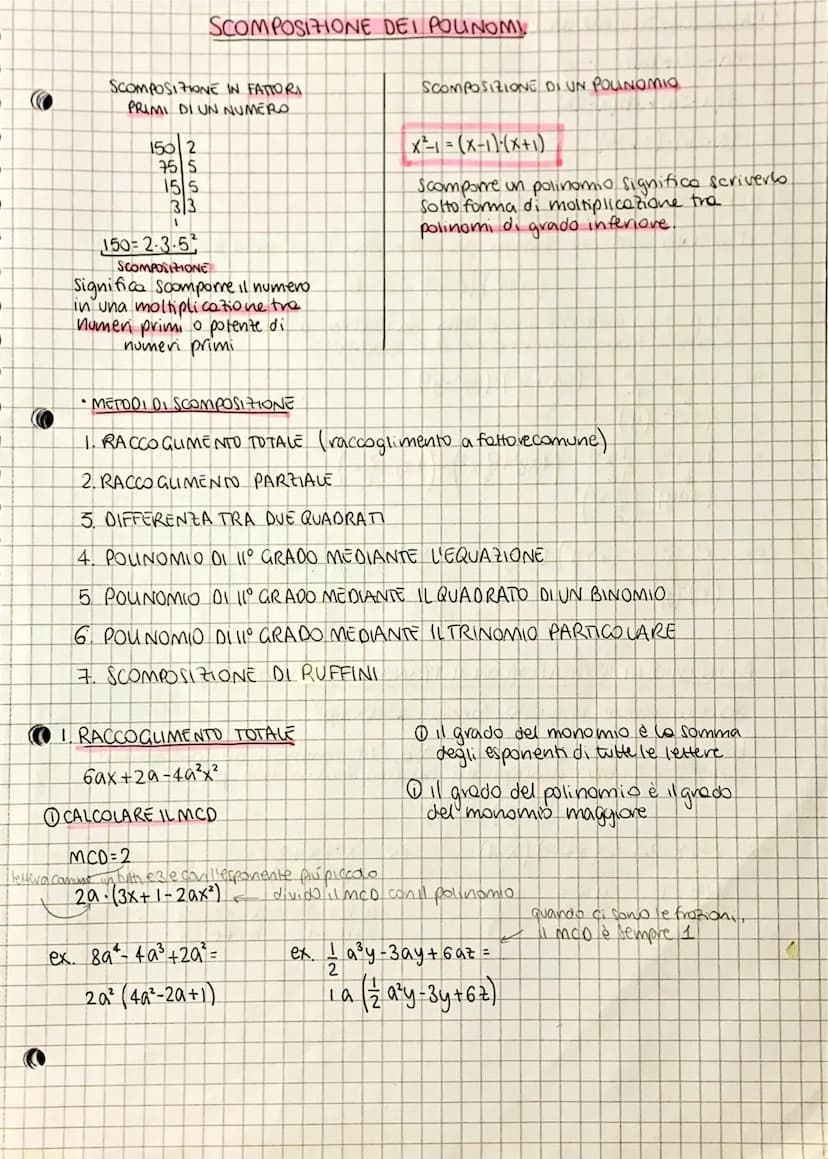 SCOMPOSIZIONE DEI POLINOMI
SCOMPOSIZIONE IN FATTORI
PRIMI DI UN NUMERO
150 | 2
75 | 5
15 | 5
3 | 3
1
150 = 2·3·5²
SCOMPOSIZIONE
Significa scomporre il numero
in una moltiplicazione tra
numeri primi o potenze di
numeri primi
SCOMPOSIZIONE DI UN POLINOMIO
x²-1 = (x-1)·(x+1)
Scomporre un polinomio significa scriverlo
sotto forma di moltiplicazione tra
polinomi di grado inferiore.
• METODI DI SCOMPOSIZIONE
1. RACCOGLIMENTO TOTALE (raccoglimento a fattore comune)
2. RACCOGLIMENTO PARZIALE
3. DIFFERENZA TRA DUE QUADRATI
4. POLINOMIO DI II° GRADO MEDIANTE L'EQUAZIONE
5 POLINOMIO DI II° GRADO MEDIANTE IL QUADRATO DI UN BINOMIO
6. POLINOMIO DI II° GRADO MEDIANTE IL TRINOMIO PARTICOLARE
7. SCOMPOSIZIONE DI RUFFINI
1. RACCOGLIMENTO TOTALE
6ax+2a-4a²x²
① CALCOLARE IL MCD
MCD=2
lettera comune in tutti e 3 e con l'esponente più piccolo
2a·(3x+1-2ax²) ← divido il MCD con il polinomio
① il grado del monomio è la somma
degli esponenti di tutte le lettere
① il grado del polinomio è il grado
del monomio maggiore
ex. 8a⁴-4a³+2a²=
2a² (4a²-2a+1)
quando ci sono le frazioni,
il MCD è sempre 1
ex. 1/2 a³y-3ay+6az =
1a (1/2 a²y-3y+6z)